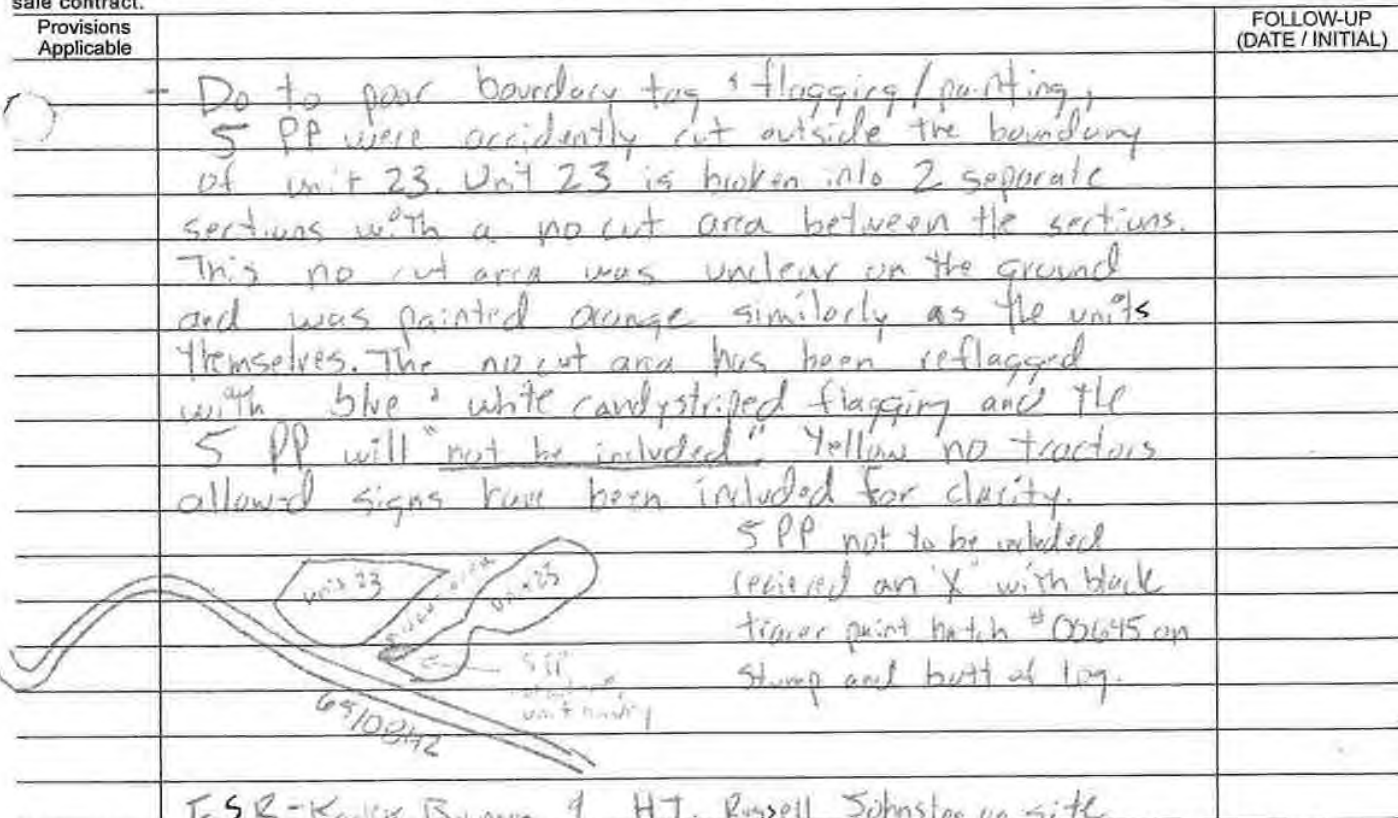 sale contract.
Provisions
Applicable
FOLLOW-UP
(DATE / INITIAL)
- Do to poor boundary tag & flagging/painting,
5 PP were accidently cut outside the boundary
of unit 23. Unit 23 is broken into 2 separate
sections with a no cut area between the sections.
This no cut area was unclear on the ground
and was painted orange similarly as the units
themselves. The no cut area has been reflagged
with blue & white candystriped flagging and the
5 PP will "not be included". Yellow no tractors
allowed signs have been included for clarity.
5 PP not to be included
recieved an "X" with black
tracer paint batch # on
Stump and butt of log.
Unit 23
no cut area
Unit 23
5 PP
unit
FSR- & HI. Russell Johnston on site